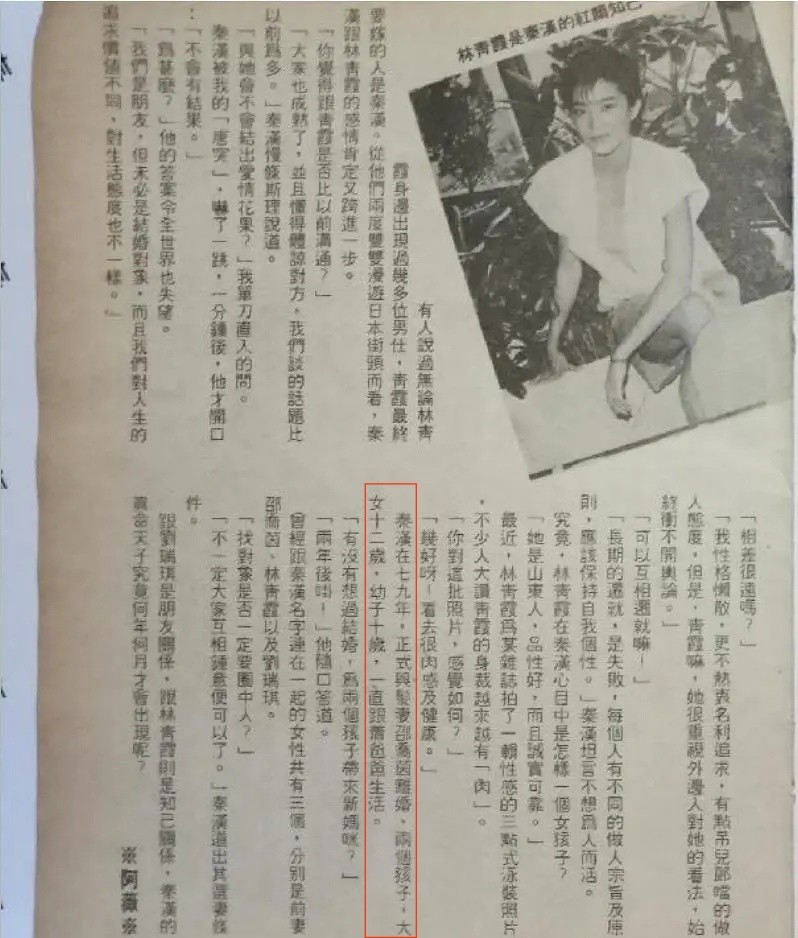 林青霞是秦漢的紅顏知己
有人說過無論林青
霞身邊出現過幾多位男仕，青霞最終
要嫁的人是秦漢。從他們兩度雙雙漫遊日本街頭而看，秦
漢跟林青霞的感情肯定又跨進一步。
「你覺得跟青霞是否比以前溝通？」
「大家也成熟了，並且懂得體諒對方，我們談的話題比
以前為多。」秦漢慢條斯理說道。
「與她會不會結出愛情花果？」我單刀直入的問。
秦漢被我的「唐突」，嚇了一跳，一分鐘後，他才開口
：
「不會有結果。」
「為甚麼？」他的答案令全世界也失望。
「我們是朋友，但未必是結婚對象，而且我們對人生的
追求價值不同，對生活態度也不一樣。」
「相差很遠嗎？」
「我性格懶散，更不熱衷名利追求，有點吊兒郎噹的做
人態度，但是，青霞嘛，她很重視外邊人對她的看法，始
終衝不開輿論。」
「可以互相遷就嘛！」
「長期的遷就，是失敗，每個人有不同的做人宗旨及原
則，應該保持自我個性。」秦漢坦言不想為人而活。
究竟，林青霞在秦漢心目中是怎樣一個女孩子？
「她是山東人，品性好，而且誠實可靠。」
最近，林青霞為某雜誌拍了一輯性感的三點式泳裝照片
，不少人大讚青霞的身裁越來越有「肉」。
「你對這批照片，感覺如何？」
「幾好呀！看去很肉感及健康。」
秦漢在七九年，正式與髮妻邵喬茵離婚，兩個孩子，大
女十二歲，幼子十歲，一直跟蕭爸爸生活。
「有沒有想過結婚，為兩個孩子帶來新媽咪？」
「兩年後啩！」他隨口答道。
曾經跟秦漢名字連在一起的女性共有三個，分別是前妻
邵喬茵、林青霞以及劉瑞琪。
「找對象是否一定要圈中人？」
「不一定大家互相鍾意便可以了。」秦漢道出其選妻條
件。
跟劉瑞琪是朋友關係，跟林青霞則是知己關係，秦漢的
真命天子究竟何年何月才會出現呢？
※阿薇※